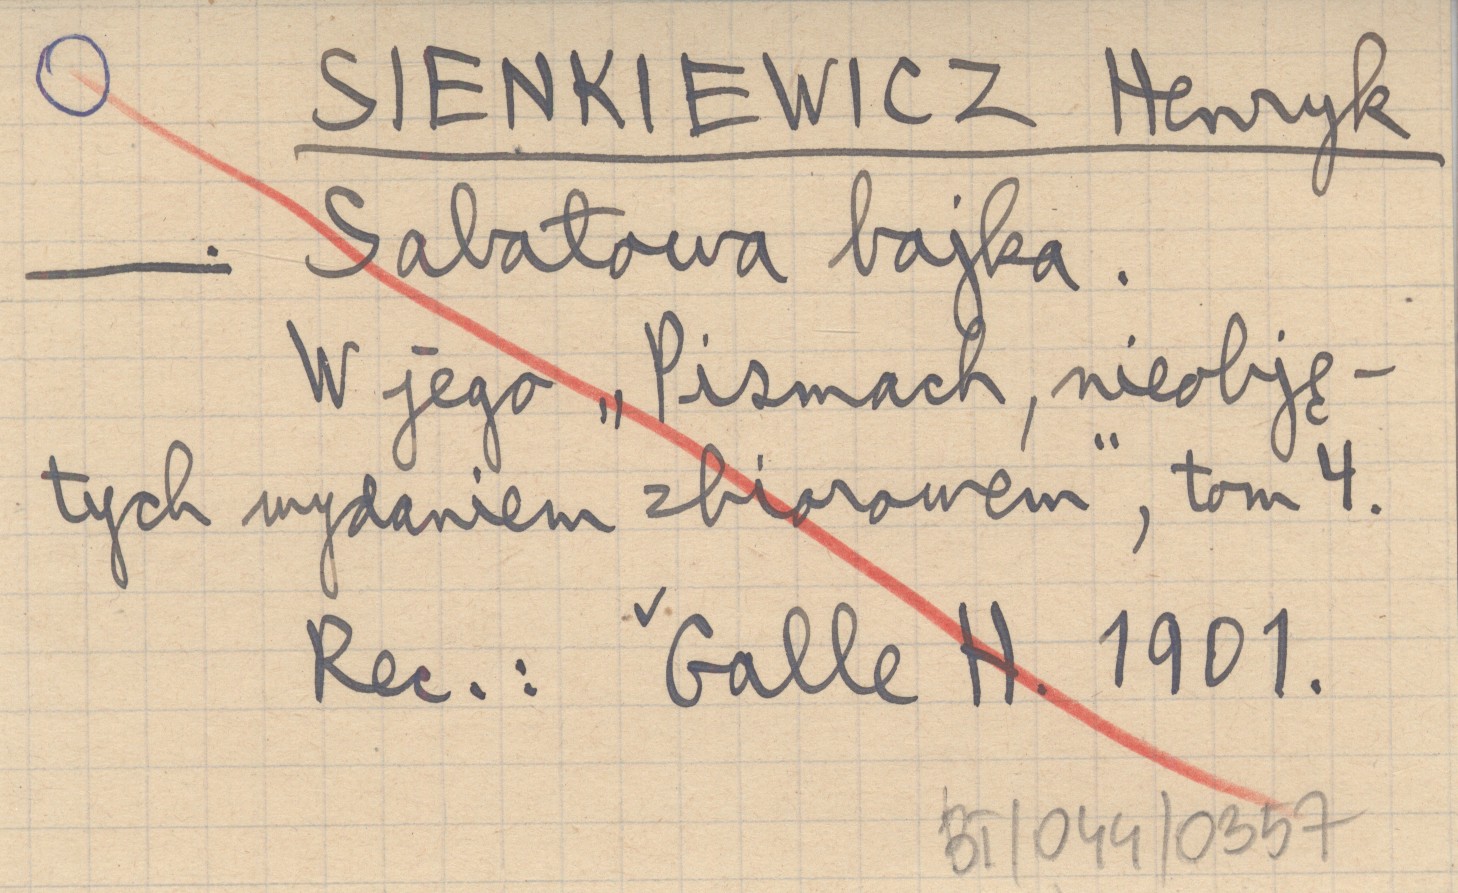 SIENKIEWICZ Henryk
Sabatowa bajka.
W jego „Pismach, nieobję-
tych wydaniem zbiorowem", tom 4.
Rec.: ✓Galle H. 1901.
BT/044/0357